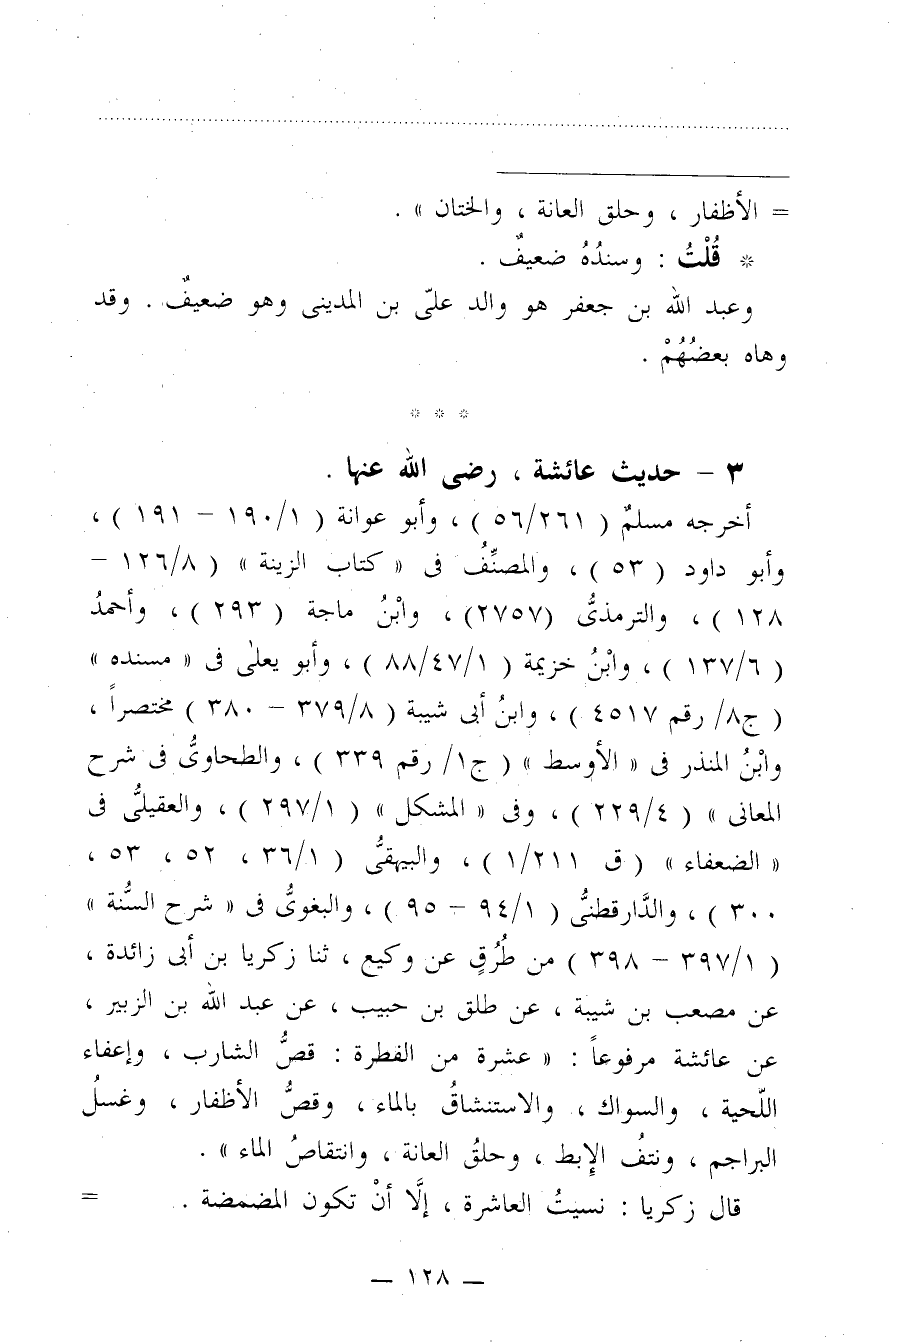 = الأظفار ، وحلق العانة ، والختان » .
* قُلْتُ : وسندُهُ ضعيفٌ .
وعبد الله بن جعفر هو والد علىّ بن المدينى وهو ضعيفٌ . وقد
وهاه بعضُهُمْ .
* * *
٣ – حديث عائشة ، رضى الله عنها .
أخرجه مسلمٌ ( ٥٦/٢٦١ ) ، وأبو عوانة ( ١٩٠/١ – ١٩١ ) ،
وأبو داود ( ٥٣ ) ، والمصنِّفُ فى « كتاب الزينة » ( ١٢٦/٨ –
١٢٨ ) ، والترمذىُّ (٢٧٥٧) ، وابْنُ ماجة ( ٢٩٣ ) ، وأحمدُ
( ١٣٧/٦ ) ، وابْنُ خزيمة ( ٨٨/٤٧/١ ) ، وأبو يعلىٰ فى « مسنده »
( ج٨/ رقم ٤٥١٧ ) ، وابنُ أبى شيبة ( ٣٧٩/٨ – ٣٨٠ ) مختصراً ،
وابْنُ المنذر فى « الأوسط » ( ج١/ رقم ٣٣٩ ) ، والطحاوىُّ فى شرح
المعانى » ( ٢٢٩/٤ ) ، وفى « المشكل » ( ٢٩٧/١ ) ، والعقيلىُّ فى
« الضعفاء » ( ق ١/٢١١ ) ، والبيهقىُّ ( ٣٦/١ ، ٥٢ ، ٥٣ ،
٣٠٠ ) ، والدَّارقطنىُّ ( ٩٤/١ – ٩٥ ) ، والبغوىُّ فى « شرح السُّنة »
( ٣٩٧/١ – ٣٩٨ ) من طُرُقٍ عن وكيع ، ثنا زكريا بن أبى زائدة ،
عن مصعب بن شيبة ، عن طلق بن حبيب ، عن عبد الله بن الزبير ،
عن عائشة مرفوعاً : « عشرة من الفطرة : قصُّ الشارب ، وإعفاء
اللّحية ، والسواك ، والاستنشاقُ بالماء ، وقصُّ الأظفار ، وغسلُ
البراجم ، ونتفُ الإبط ، وحلقُ العانة ، وانتقاصُ الماء » .
قال زكريا : نسيتُ العاشرة ، إلَّا أنْ تكون المضمضة . =
– ١٢٨ –